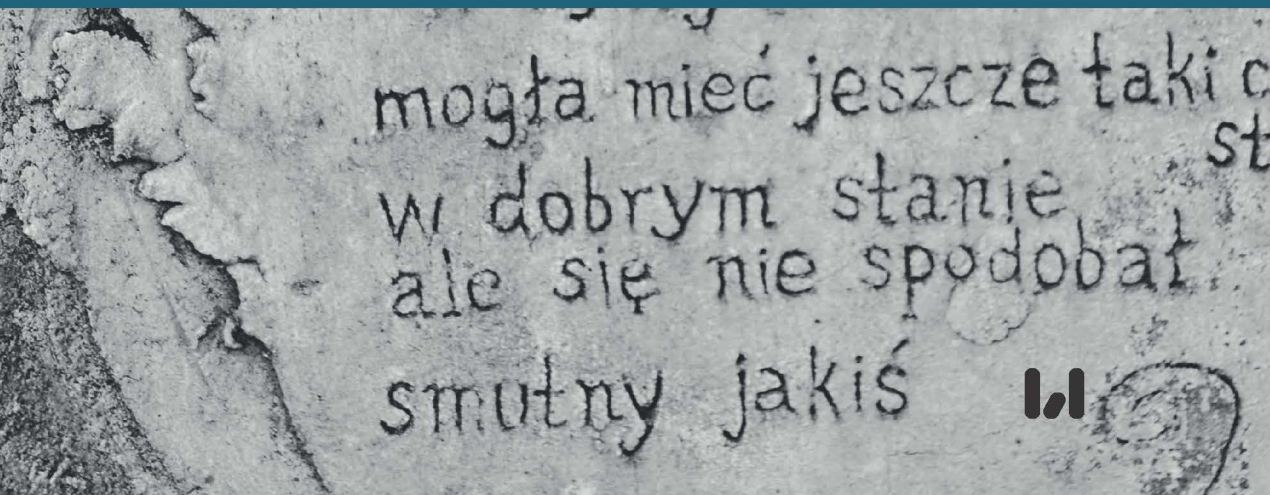 mogła mieć jeszcze taki
w dobrym stanie
ale się nie spodobał
smutny jakiś